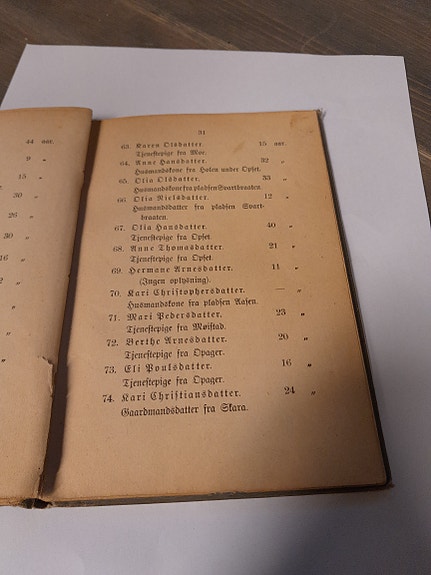 44 aar.
9 „
15 „
30 „
26 „
30 „
16 „
2 „
„
„
„
31
63. Karen Olsdatter. 15 aar.
Tjenestepige fra Moe.
64. Anne Hansdatter. 32 „
Husmandskone fra Holen under Opset.
65. Olia Olsdatter. 33 „
Husmandskone fra pladsen Svartbraaten.
66. Olia Nielsdatter. 12 „
Husmandsdatter fra pladsen Svart-
braaten.
67. Olia Hansdatter. 40 „
Tjenestepige fra Opset.
68. Anne Thomasdatter. 21 „
Tjenestepige fra Opset.
69. Hermane Arnesdatter. 11 „
(Ingen oplysning).
70. Kari Christophersdatter. — „
Husmandskone fra pladsen Aasen.
71. Mari Pedersdatter. 23 „
Tjenestepige fra Møistad.
72. Berthe Arnesdatter. 20 „
Tjenestepige fra Opager.
73. Eli Poulsdatter. 16 „
Tjenestepige fra Opager.
74. Kari Christiansdatter. 24 „
Gaardmandsdatter fra Skara.